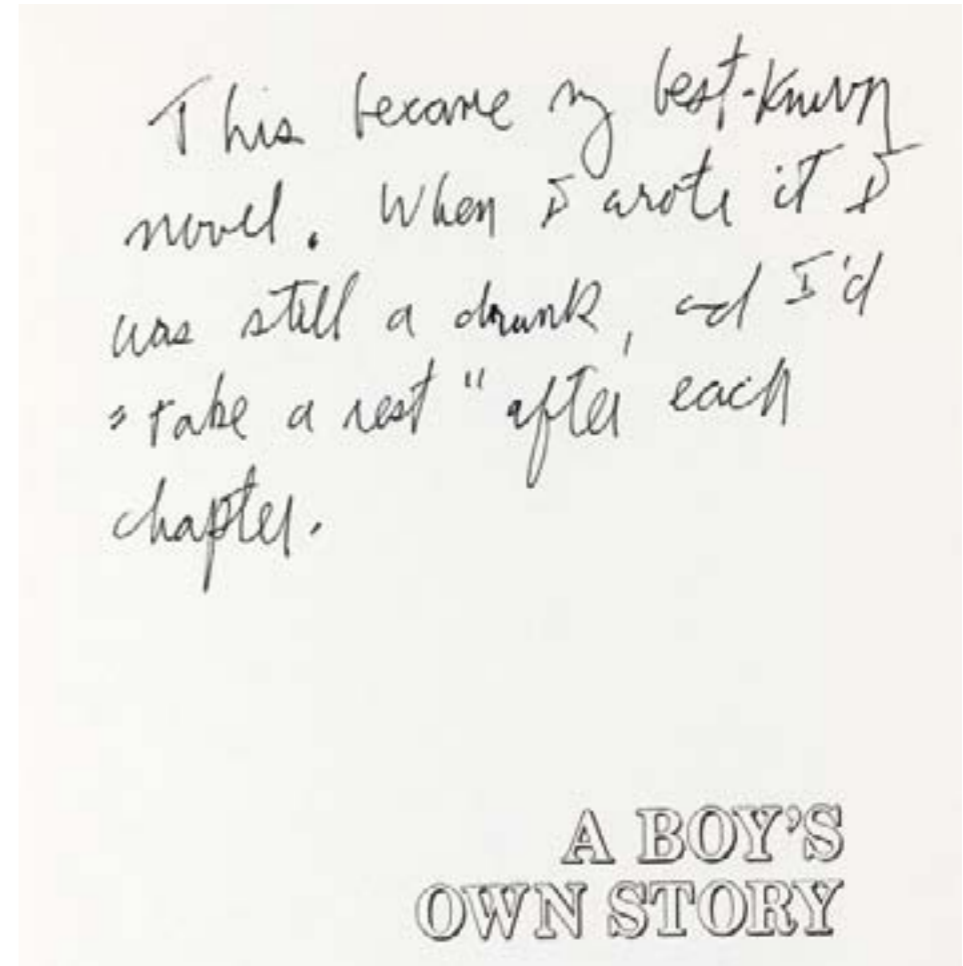 This became my best-known
novel. When I wrote it I
was still a drunk, and I'd
"take a rest" after each
chapter.
A BOY'S
OWN STORY